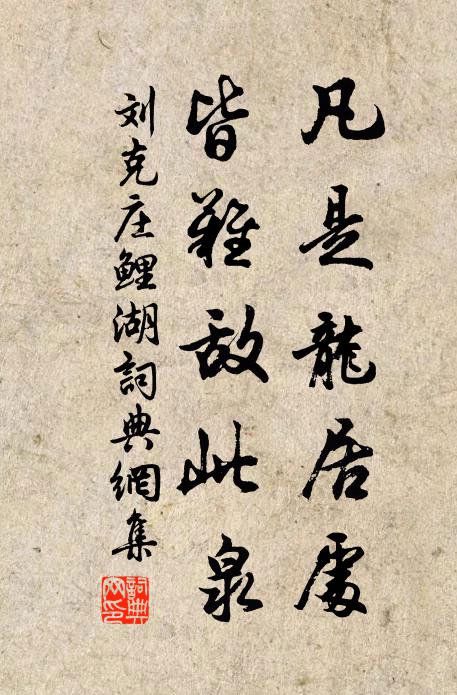 凡是龍居處
皆難敌此泉
刘克庄鲤湖詞典網集
詞典
网印